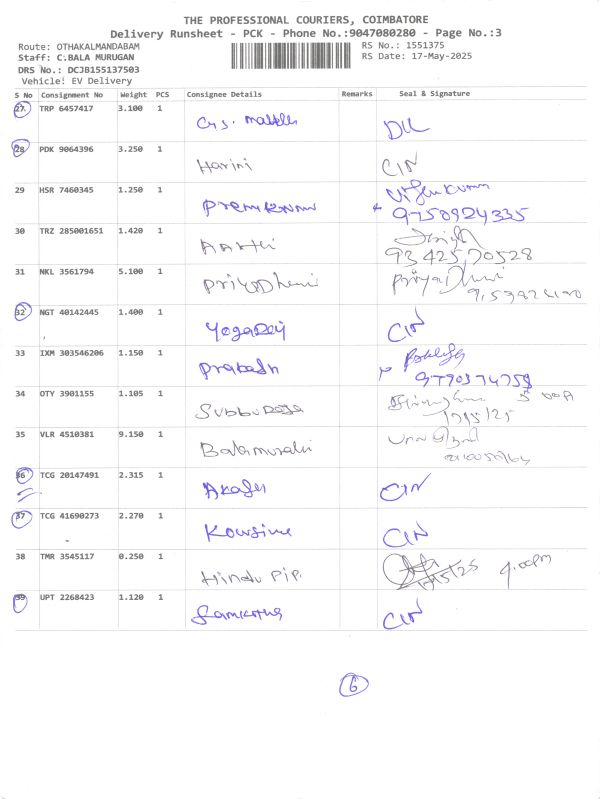 THE PROFESSIONAL COURIERS, COIMBATORE
Delivery Runsheet - PCK - Phone No.:9047080280 - Page No.:3
Route: OTHAKALMANDABAM
RS No.: 1551375
Staff: C.BALA MURUGAN
RS Date: 17-May-2025
DRS No.: DCJB155137503
Vehicle: EV Delivery
S No Consignment No Weight PCS Consignee Details Remarks Seal & Signature
27 TRP 6457417 3.100 1
28 PDK 9064396 3.250 1 Harini CIN
29 HSR 7460345 1.250 1 Premkumar 9750924335
30 TRZ 285001651 1.420 1 AARthi 9342570528
31 NKL 3561794 5.100 1 PriyaDheni
32 NGT 40142445 1.400 1 CIN
33 IXM 303546206 1.150 1 Prakash
34 OTY 3901155 1.105 1 Subburaja 17/5/25
35 VLR 4510381 9.150 1 Balamurali
36 TCG 20147491 2.315 1 CIN
37 TCG 41690273 2.270 1 CIN
38 TMR 3545117 0.250 1 Hindu PIP. 4.00PM
39 UPT 2268423 1.120 1 CIN
6